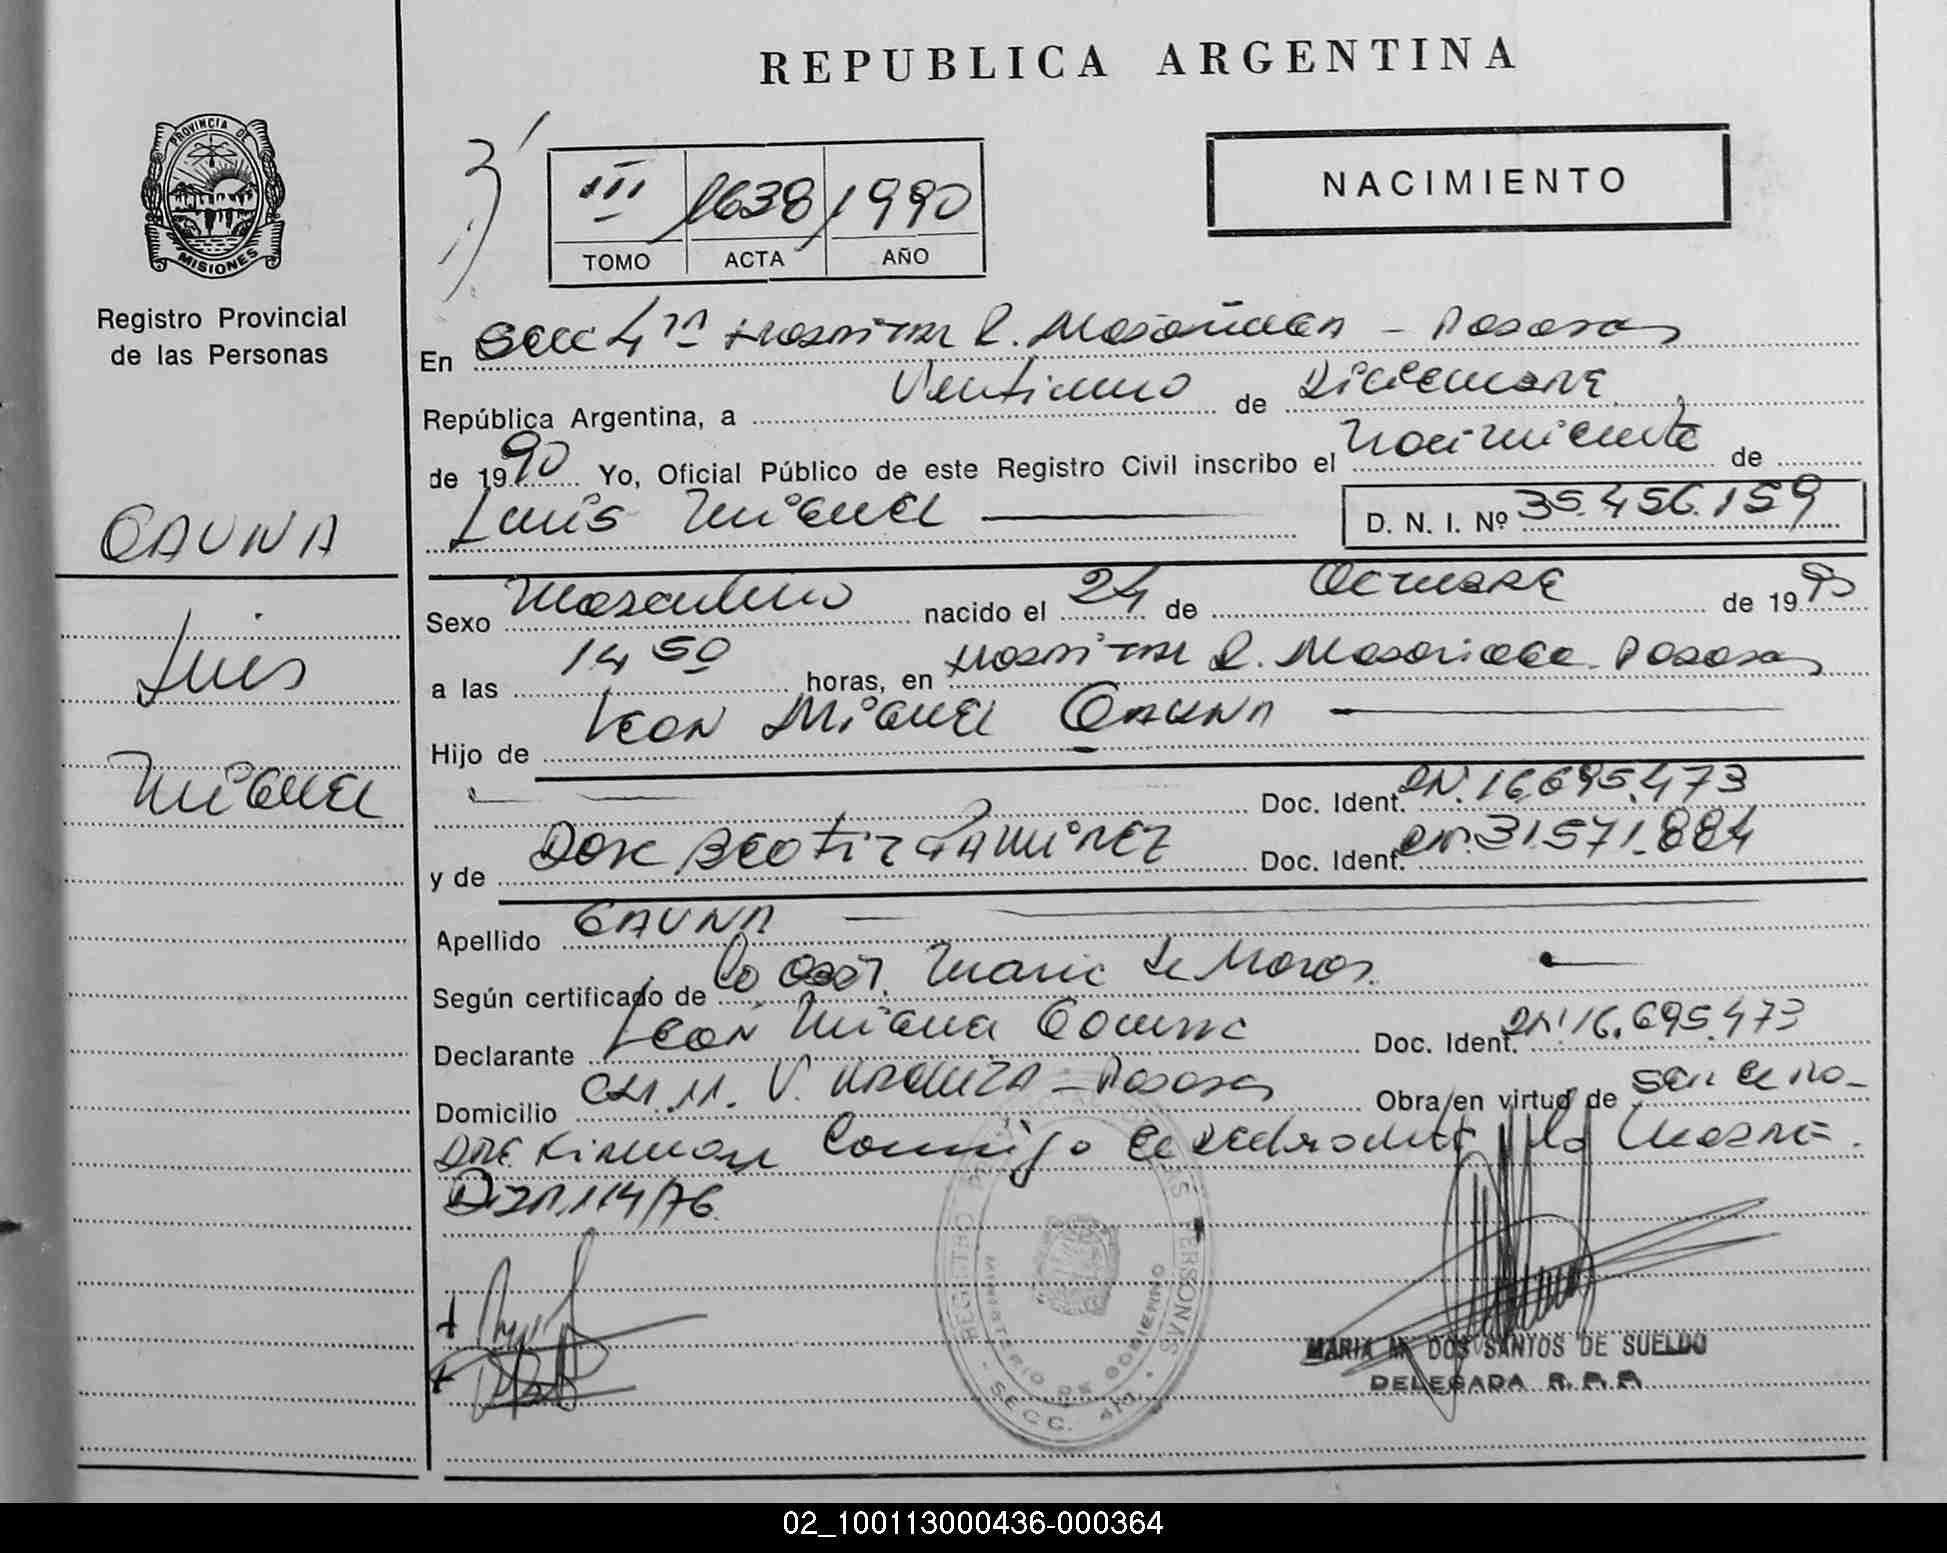 REPUBLICA ARGENTINA
PROVINCIA DE
MISIONES
Registro Provincial
de las Personas
III 1638 1990
TOMO ACTA AÑO
NACIMIENTO
En Secc 4ta Hospital R. Madariaga - Posadas
República Argentina, a Ventiuno de Diciembre
de 1990 Yo, Oficial Público de este Registro Civil inscribo el Nacimiento de
Luis Miguel D. N. I. Nº 35.456.159
GAUNA
Luis
Miguel
Sexo Masculino nacido el 24 de Octubre de 1990
a las 14 50 horas, en Hospital R. Madariaga Posadas
Hijo de Leon Miguel Gauna
Doc. Ident. DNI. 16.695.473
y de Ramirez Doc. Ident. DNI. 31.571.884
Apellido GAUNA
Según certificado de Maria de
Declarante Leon Miguel Gauna Doc. Ident. DNI 16.695.473
Domicilio V. Urquiza - Posadas Obra en virtud de ser el pa-
dre. Firman Conmigo el Declarante y la Madre.
114/76
REGISTRO DE LAS PERSONAS
MINISTERIO DE GOBIERNO
SECC. 4ta
MARIA M. DOS SANTOS DE SUELDO
DELEGADA R. P. P.
02_100113000436-000364